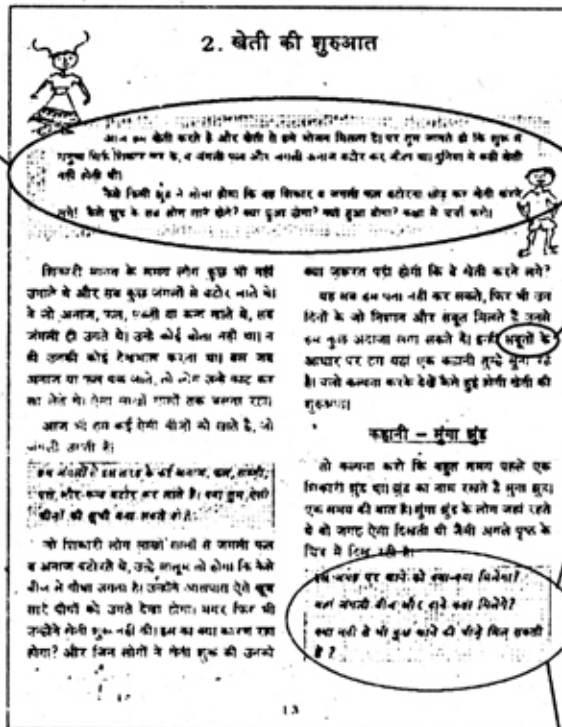 2. खेती की शुरुआत
आज हम खेती करते है और खेती से हमे भोजन मिलता है। पर तुम जानते हो कि शुरू में
मनुष्य सिर्फ शिकार कर के, व जंगली फल और जंगली अनाज बटोर कर जीता था। दुनिया में कही खेती
नही होती थी।
कैसे किसी झुंड ने सोचा होगा कि वह शिकार व जंगली फल बटोरना छोड़ कर खेती करने
लगे! कैसे झुंड के सब लोग माने होंगे? क्या हुआ होगा? क्यों हुआ होगा? कक्षा मे चर्चा करो।
शिकारी मानव के समय लोग कुछ भी नहीं
उगाते थे और सब कुछ जंगलों से बटोर लाते थे।
वे जो अनाज, फल, सब्जी या कन्द खाते थे, सब
जंगली ही उगते थे। उन्हे कोई बोता नही था। न
ही उनकी कोई देखभाल करता था। बस जब
अनाज या फल पक जाते, तो लोग उन्हे काट कर
खा लेते थे। ऐसा लाखों सालों तक चलता रहा।
आज भी हम कई ऐसी चीज़ों को खाते है, जो
जंगली उगती है।
हम जंगलों से इस तरह के कई अनाज, फल, सब्ज़ी,
पत्ते, और कन्द बटोर कर लाते है। क्या तुम ऐसी
चीज़ों की सूची बना सकते हो?
जो शिकारी लोग लाखों सालों से जंगली फल
व अनाज बटोरते थे, उन्हे मालूम तो होगा कि कैसे
बीज से पौधा उगता है। उन्होंने आसपास ऐसे खूब
सारे पौधों को उगते देखा होगा। मगर फिर भी
उन्होंने खेती शुरू नही की। इस का क्या कारण रहा
होगा? और जिन लोगों ने खेती शुरू की उनको
क्या ज़रूरत पड़ी होगी कि वे खेती करने लगे?
यह सब हम पता नही कर सकते, फिर भी उन
दिनों के जो निशान और सबूत मिलते है उनसे
हम कुछ अंदाजा लगा सकते है। इन्ही सबूतों के
आधार पर हम यहां एक कहानी तुम्हे सुना रहे
है। चलो कल्पना करके देखें कैसे हुई होगी खेती की
शुरुआत।
कहानी – मुंगा झुंड
तो कल्पना करो कि बहुत समय पहले एक
शिकारी झुंड था। झुंड का नाम रखते है मुंगा झुंड।
एक समय की बात है। मुंगा झुंड के लोग जहां रहते
थे वो जगह ऐसी दिखती थी जैसी अगले पृष्ठ के
चित्र में दिख रही है।
इस जगह पर खाने को क्या-क्या मिलेगा?
यहां जंगली बीज और दाने कहां मिलेंगे?
क्या नदी से भी कुछ खाने की चीज़ें मिल सकती
है?
13